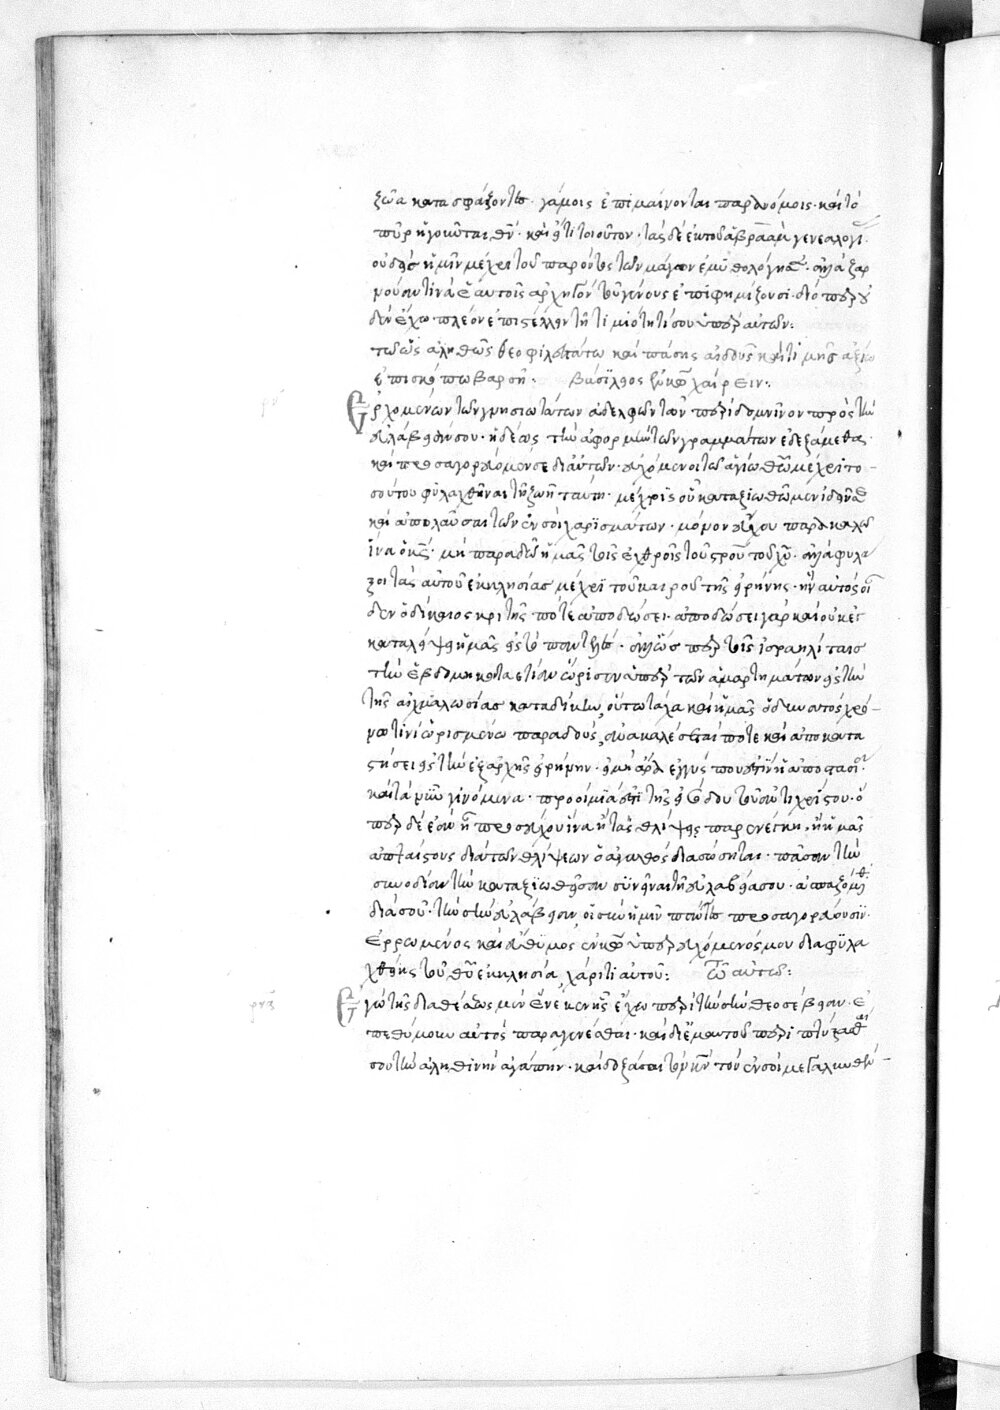 ζῶα κατασφάζοντες. γάμοις ἐπιμαίνονται παρανόμοις. καὶ τὸ
πῦρ ἡγοῦνται θν̄. καὶ εἴ τι τοιοῦτον. τὰς δὲ ἐκ τοῦ ἀβραὰμ γενεαλογί.
οὐδεὶς ἡμῖν μέχρι τοῦ παρόντος τῶν μάγων ἐμυθολόγησεν. ἀλλὰ ζαρ
νοῦάν τινα ἑαυτοῖς ἀρχηγὸν τοῦ γένους ἐπιφημίζουσι. διόπερ οὐ
δὲν ἔχω πλέον ἐπιστέλλειν τῇ τιμιότητί σου ὑπὲρ αὐτῶν:
τῶ ὡς ἀληθῶς θεοφιλεστάτω καὶ πάσης αἰδοῦς καὶ τιμῆς ἀξίω
ἐπισκόπω βάρση: βασίλειος ἐν κω̄ χαίρειν:
ἐρχομένων τῶν γνησιωτάτων ἀδελφῶν τῶν περὶ δομνῖνον πρὸς τὴν
εὐλάβειάν σου. ἡδέως τὴν ἀφορμὴν τῶν γραμμάτων ἐδεξάμεθα.
καὶ προσαγορεύομέν σε δι αὐτῶν. εὐχόμενοι τῶ ἁγίω θεῶ μέχρι το-
σούτου φυλαχθῆναι τῇ ζωῇ ταύτῃ. μέχρις οὗ καταξιωθῶμεν ἰδεῖν σε
καὶ ἀπολαῦσαι τῶν ἐν σοὶ χαρισμάτων. μόνον εὔχου παρακαλῶ
ἵνα ὁ κς̄. μὴ παραδῶ ἡμᾶς τοῖς ἐχθροῖς τοῦ σταυροῦ τοῦ χῡ. ἀλλὰ φυλά
ξοι τὰς αὐτοῦ ἐκκλησίας μέχρι τοῦ καιροῦ τῆς εἰρήνης. ἣν αὐτὸς οἶ
δεν ὁ δίκαιος κριτὴς πότε ἀποδώσει. ἀποδώσει γὰρ καὶ οὐκ ἐγ
καταλείψει ἡμᾶς εἰς τὸ παντελές. ἀλλ ὡς περ τοῖς ἰσραηλίταις
τὴν ἑβδομηκονταετίαν ὥρισεν ὑπὲρ τῶν ἁμαρτημάτων εἰς τὴν
τῆς αἰχμαλωσίας καταδίκην, οὕτω τάχα καὶ ἡμᾶς ὁ δυνατὸς χρό-
νω τινὶ ὡρισμένω παραδοὺς, ἀνακαλέσεταί ποτε καὶ ἀποκατα
στήσει εἰς τὴν ἐξ ἀρχῆς εἰρήνην. εἰ μὴ ἄρα ἐγγύς που ἐστὶν ἡ ἀποστασία.
καὶ τὰ νῦν γινόμενα. προοίμιά ἐστι τῆς εἰσόδου τοῦ ἀντιχρίστου. ὅ
περ δὲ ἐὰν ᾖ προσεύχου ἵνα ἢ τὰς θλίψεις παρενέγκῃ, ἢ ἡμᾶς
ἀπταίστους διὰ τῶν θλίψεων ὁ ἀγαθὸς διασώσηται. πᾶσαν τὴν
συνοδίαν τὴν καταξιωθεῖσαν συνεῖναι τῇ εὐλαβείᾳ σου. ἀσπαζόμεθα
διὰ σοῦ. τὴν σὴν εὐλάβειαν, οἱ σὺν ἡμῖν πάντες προσαγορεύουσιν.
ἐρρωμένος καὶ εὔθυμος ἐν κω̄ ὑπερευχόμενός μου διαφυλα
χθείης τοῦ θῡ ἐκκλησίᾳ, χάριτι αὐτοῦ: τῶ αὐτῶ:
ἐγὼ τῆς διαθέσεως μὲν ἕνεκεν ἧς ἔχω περὶ τὴν σὴν θεοσέβειαν. ἐ
πεθύμουν αὐτὸς παραγενέσθαι. καὶ δι ἐμαυτοῦ περιπτύξασθαί
σου τὴν ἀληθινὴν ἀγάπην. καὶ δοξάσαι τὸν κν̄ τὸν ἐν σοὶ μεγαλυνθέν-